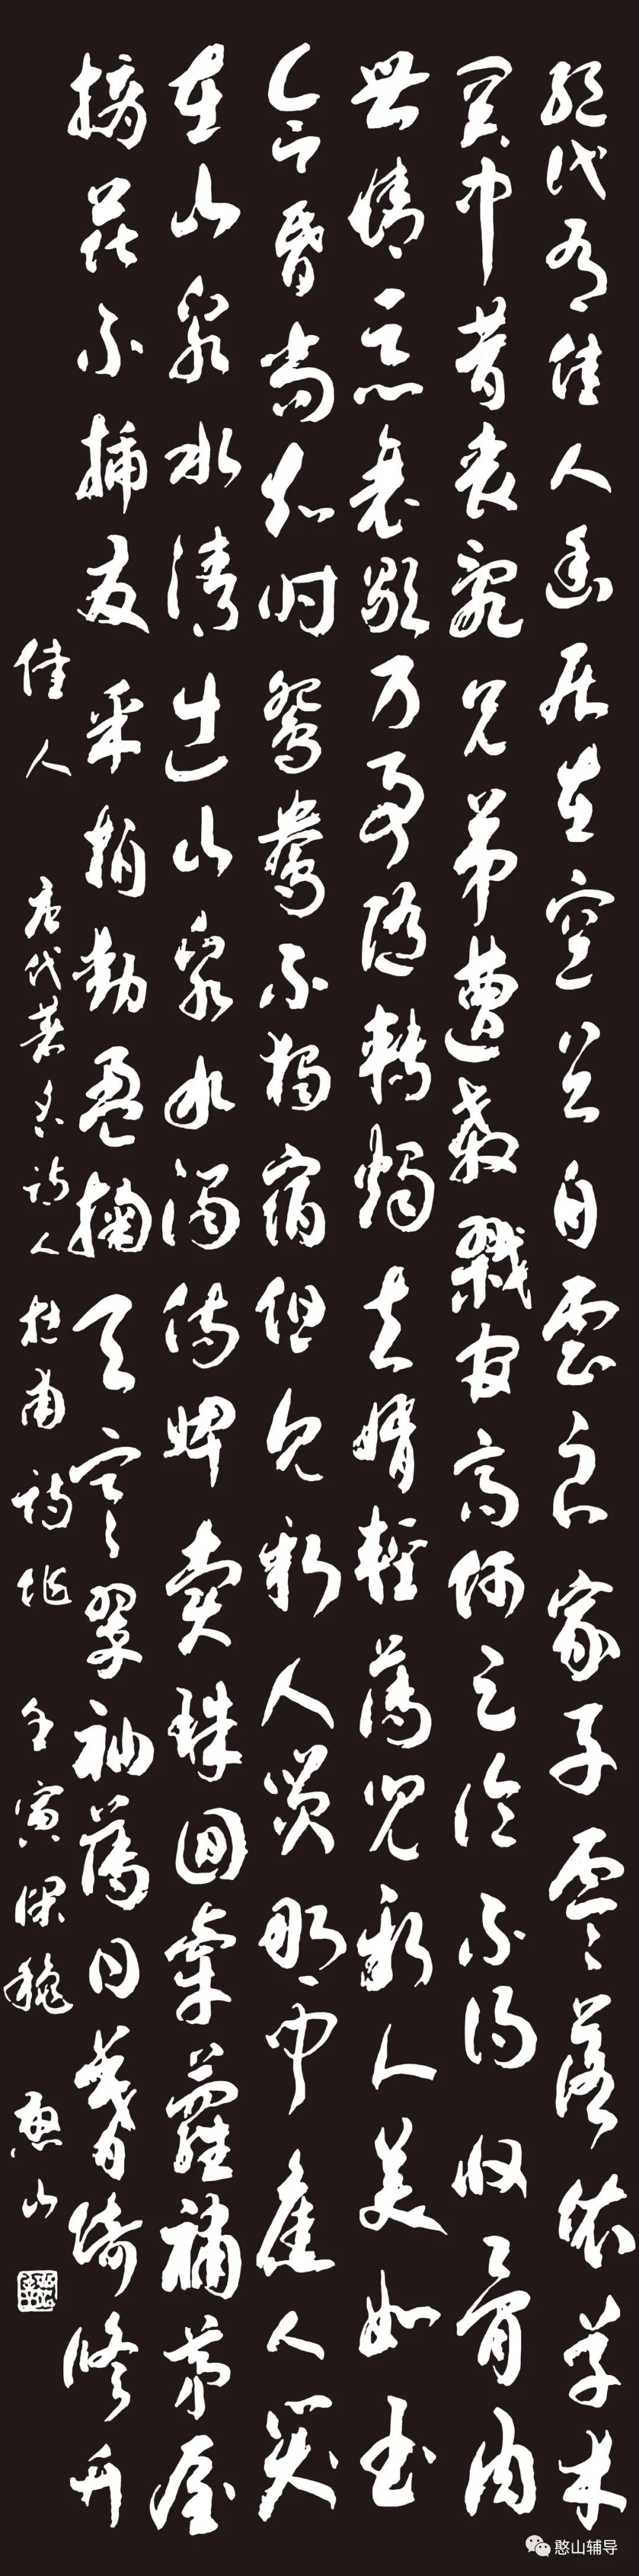 絕代有佳人幽居在空谷自雲良家子零落依草木
關中昔喪亂兄弟遭殺戮官高何足論不得收骨肉
世情惡衰歇万事隨轉燭夫婿輕薄兒新人美如玉
合昏尚知时鴛鴦不獨宿但見新人笑那聞舊人哭
在山泉水清出山泉水濁侍婢賣珠迴牽蘿補茅屋
摘花不插髮采柏動盈掬天寒翠袖薄日暮倚修竹
佳人 唐代著名詩人杜甫詩作 壬寅深秋 憨山
憨山辅导